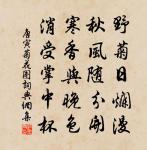 野菊日爛漫
秋風隨分開
寒香與晚色
消受掌中杯
唐寅菊花圖詞典網集